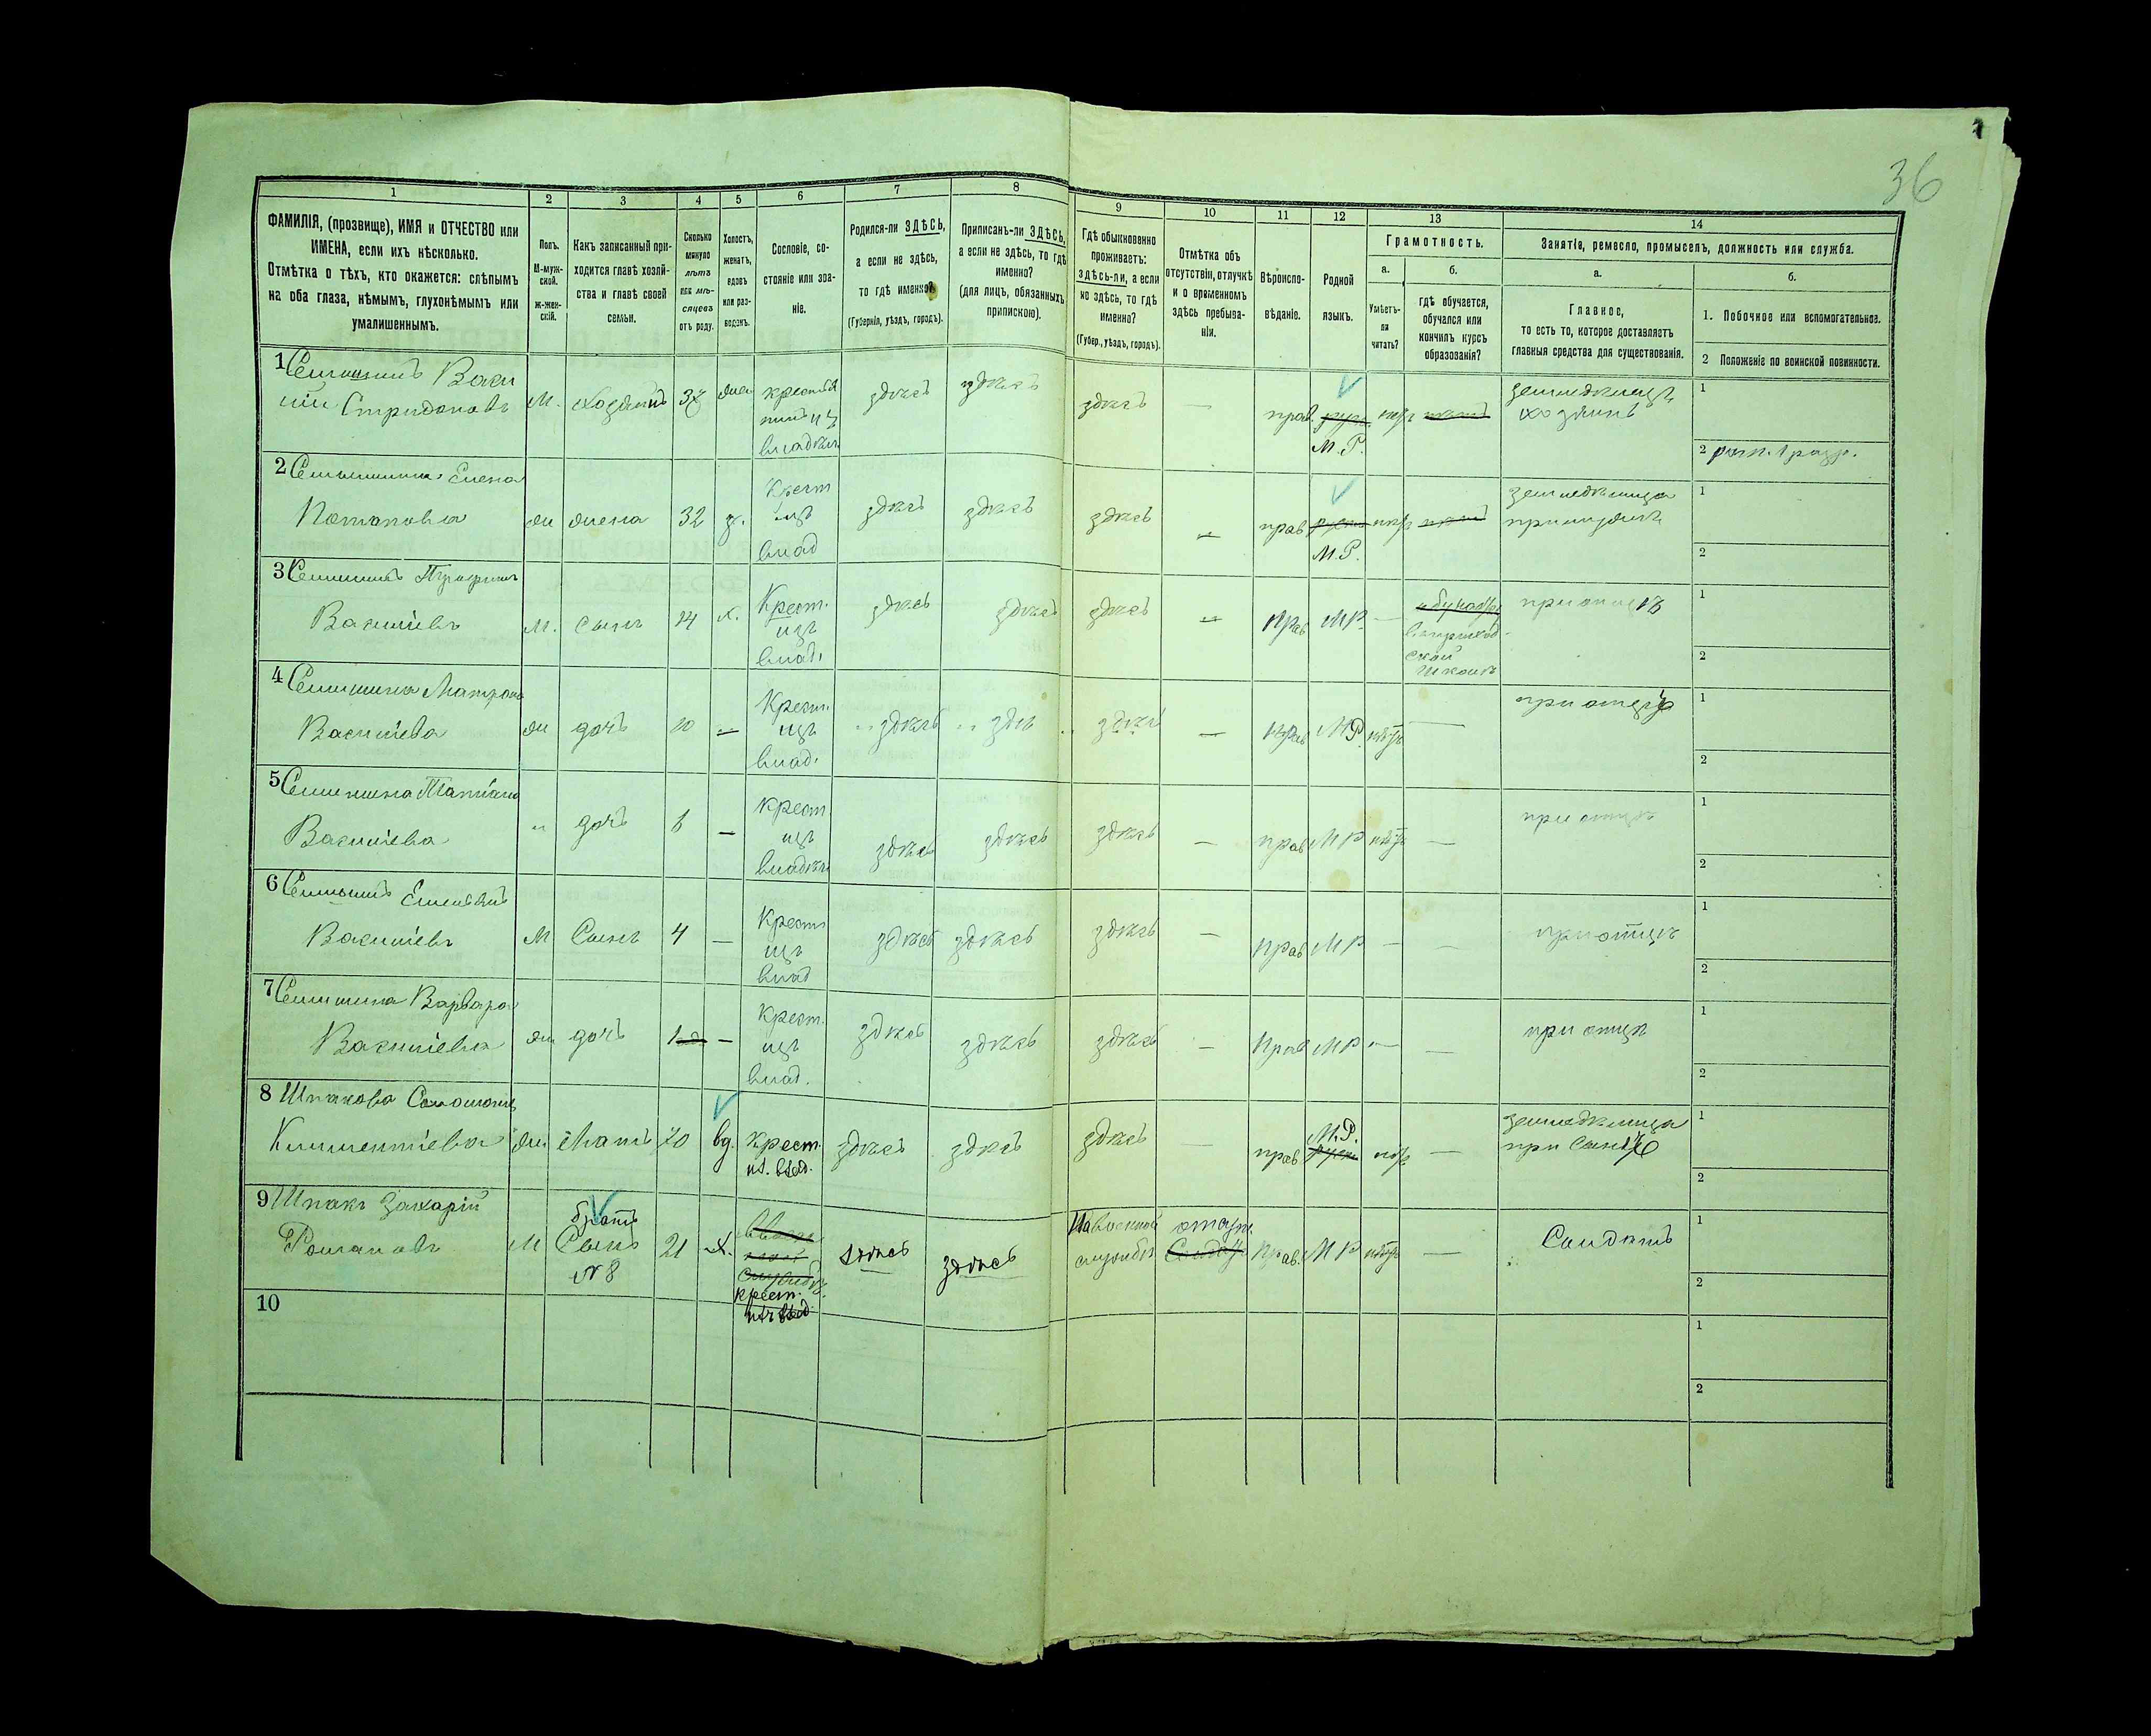 36
1 2 3 4 5 6 7 8 9 10 11 12 13 14
ФАМИЛІЯ, (прозвище), ИМЯ и ОТЧЕСТВО или
ИМЕНА, если ихъ нѣсколько.
Отмѣтка о тѣхъ, кто окажется: слѣпымъ
на оба глаза, нѣмымъ, глухонѣмымъ или
умалишеннымъ.
Полъ.
М-муж-
ской.
ж-жен-
скій.
Какъ записанный при-
ходится главѣ хозяй-
ства и главѣ своей
семьи.
Сколько
минуло
лѣтъ
или мѣ-
сяцевъ
отъ роду.
Холостъ,
женатъ,
вдовъ
или раз-
веденъ.
Сословіе, со-
стояніе или зва-
ніе.
Родился-ли ЗДѢСЬ,
а если не здѣсь,
то гдѣ именно?
(Губернія, уѣздъ, городъ).
Приписанъ-ли ЗДѢСЬ,
а если не здѣсь, то гдѣ
именно?
(для лицъ, обязанныхъ
припискою).
Гдѣ обыкновенно
проживаетъ:
здѣсь-ли, а если
не здѣсь, то гдѣ
именно?
(Губер., уѣздъ, городъ).
Отмѣтка объ
отсутствіи, отлучкѣ
и о временномъ
здѣсь пребыва-
ніи.
Вѣроиспо-
вѣданіе.
Родной
языкъ.
Грамотность.
а.
Умѣетъ-
ли
читать?
б.
гдѣ обучается,
обучался или
кончилъ курсъ
образованія?
Занятіе, ремесло, промыселъ, должность или служба.
а.
Главное,
то есть то, которое доставляетъ
главныя средства для существованія.
б.
1. Побочное или вспомогательное.
2 Положеніе по воинской повинности.
1 Васи
лій Спиридоновъ М. хозяинъ 37 жен крестья
нинъ изъ
владѣл здѣсь здѣсь здѣсь — прав. М.Р. земледѣлецъ
хозяинъ
1
2 ратн. 1 разр.
2 Елена
Потаповна жи жена 32 з. Крест
изъ
влад здѣсь здѣсь здѣсь — прав М.Р. земледѣлица
при мужѣ
1
2
3 Трофимъ
Василіевъ М. Сынъ 14 х. Крест.
изъ
влад. здѣсь здѣсь здѣсь — Прав МР. —
ской
школѣ при отцѣ
1
2
4 Матрона
Василіева жи дочь 10 — Крест.
изъ
влад. здѣсь здѣсь здѣсь — Прав МР. — при отцѣ
1
2
5 Татіана
Василіева " дочь 6 — Крест
изъ
владѣл здѣсь здѣсь здѣсь — прав МР — при отцѣ
1
2
6
Василіевъ М Сынъ 4 — Крест
изъ
влад здѣсь здѣсь здѣсь — Прав МР — — при отцѣ
1
2
7 Варвара
Василіевна жи дочь 1 — Крест.
изъ
влад. здѣсь здѣсь здѣсь — Прав МР — — при отцѣ
1
2
8 Шпакова Соломонія
Климентіева жи Мать 70 вд. Крест.
из. влад. здѣсь здѣсь здѣсь — прав. М.Р. — земледѣлица
при Сынѣ
1
2
9 Шпакъ Захарій
Романовъ М братъ
Сынъ
№8 21 х. крест.
изъ влад. здѣсь здѣсь На военной
службѣ отсут. Прав. МР — Солдатъ
1
2
10
1
2